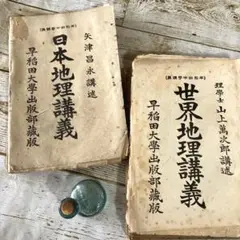 矢津昌永講述
日本地理講義
早稲田大學出版部藏版
理學士 山上萬次郎講述
世界地理講義
早稲田大學出版部藏版